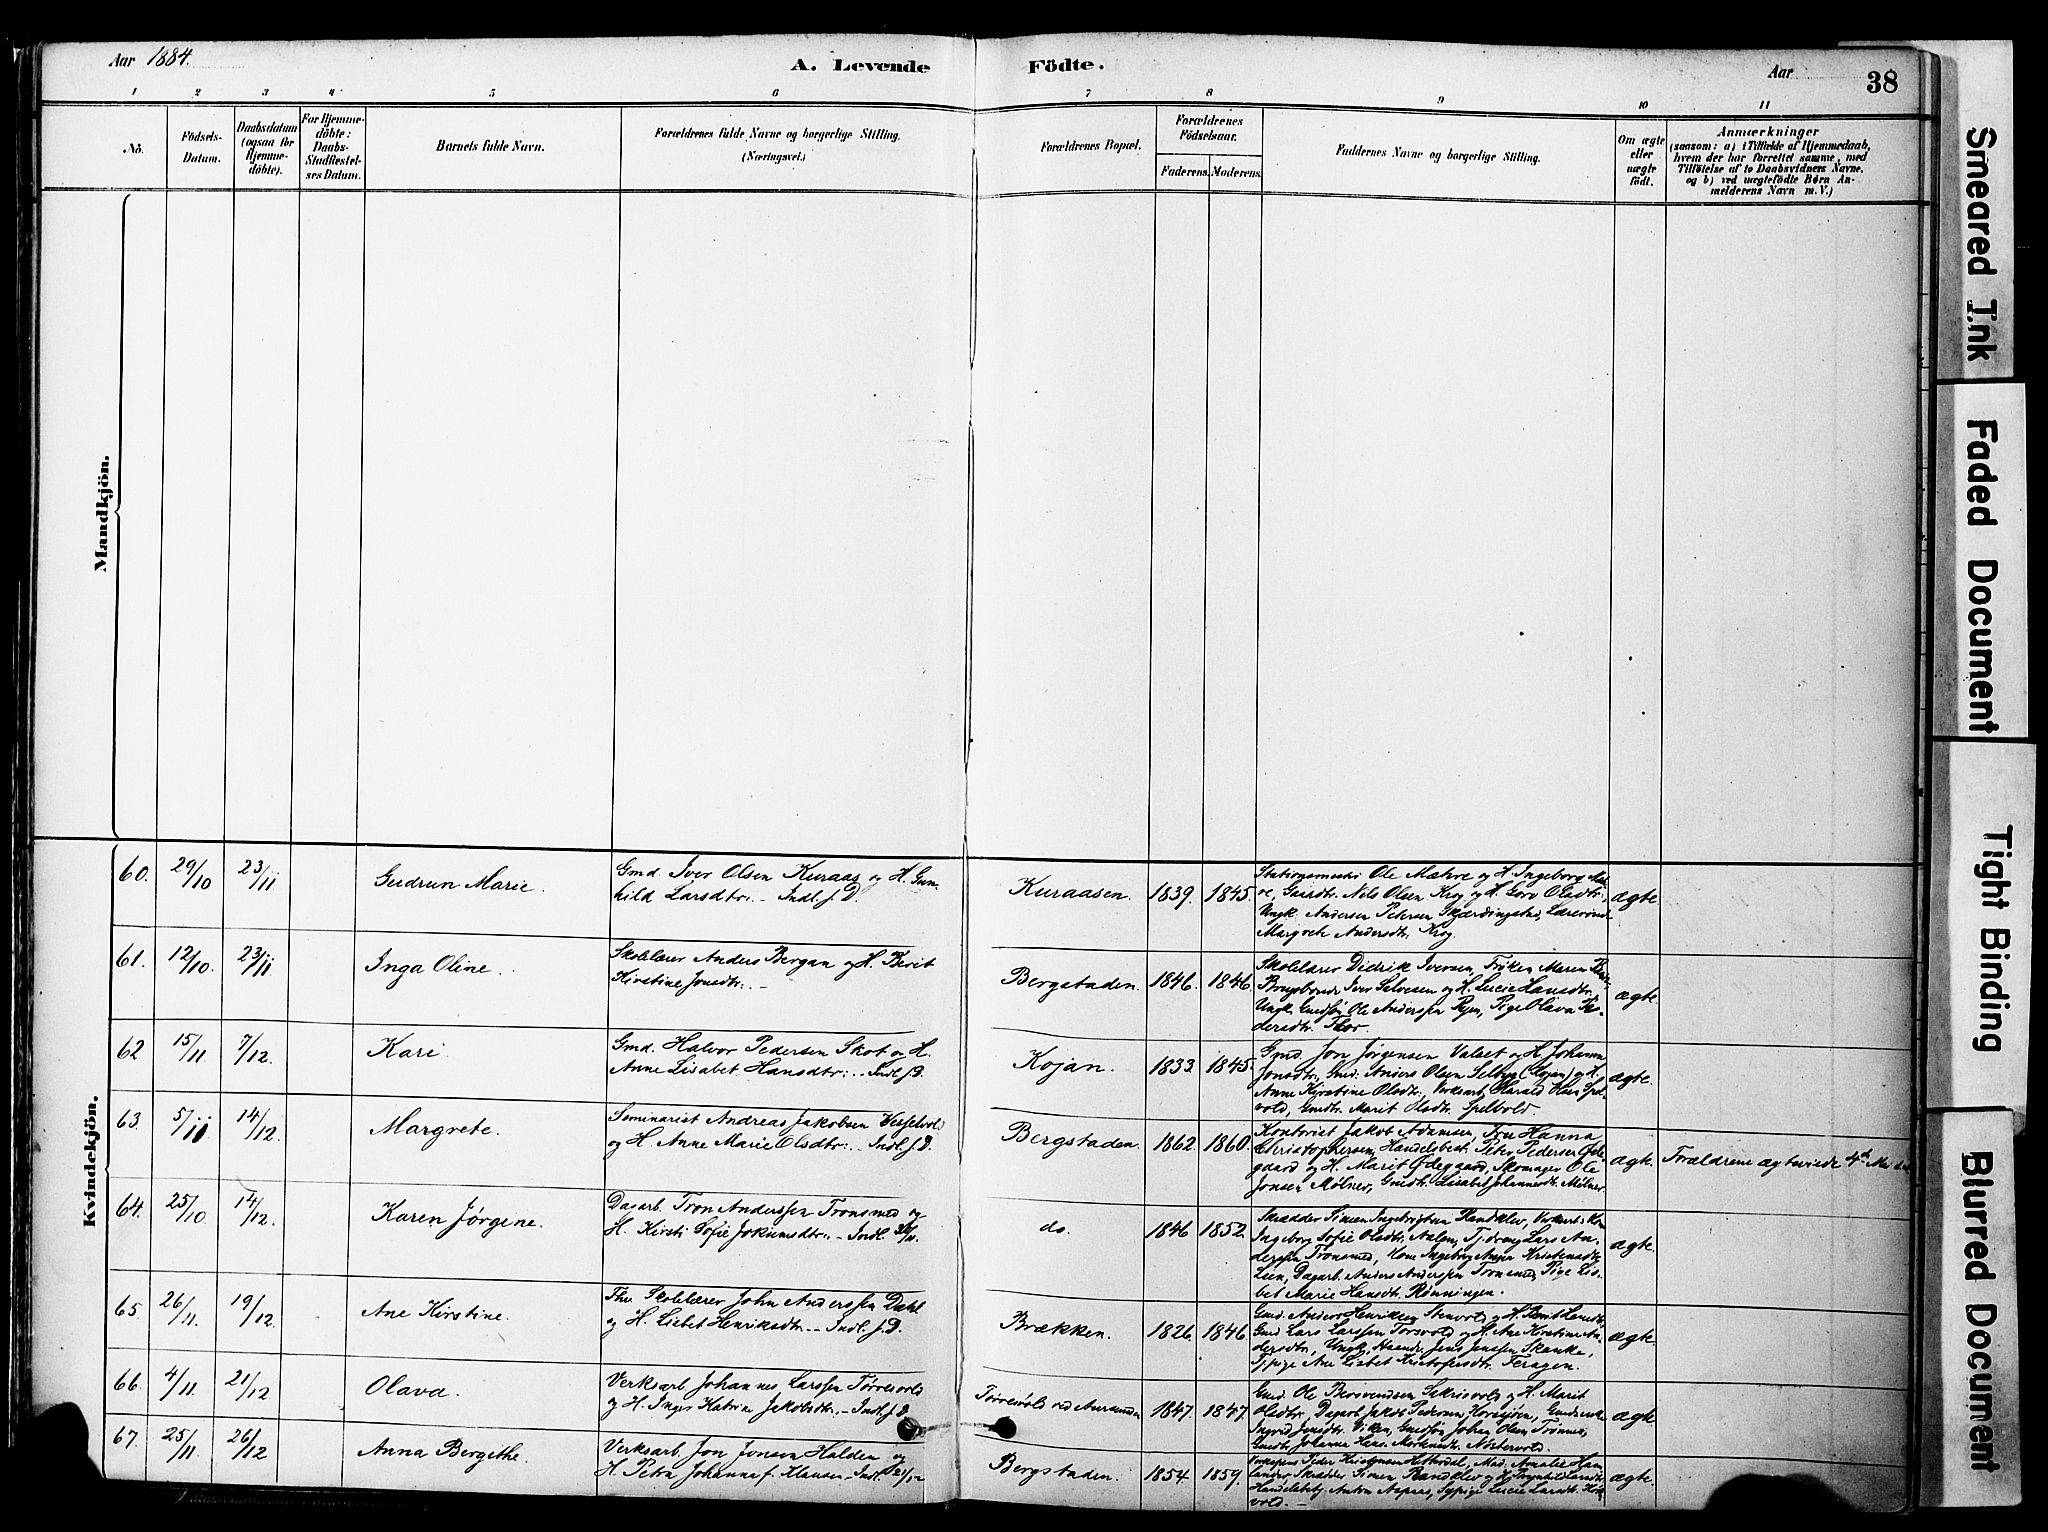 Aar 1884.
A. Levende Födte.
Aar
38
1 2 3 4 5 6 7 8 9 10 11
No.
Födsels-
Datum.
Daabsdatum
(ogsaa for
Hjemme-
döbte).
For Hjemme-
döbte:
Daabs-
Stadfæstel-
ses Datum.
Barnets fulde Navn.
Forældrenes fulde Navne og borgerlige Stilling.
(Næringsvei.)
Forældrenes Bopæl.
Forældrenes
Födselsaar.
Faderens. Moderens.
Faddernes Navne og borgerlige Stilling.
Om ægte
eller
uægte
födt.
Anmærkninger
(saasom: a) i Tilfælde af Hjemmedaab,
hvem der har forrettet samme, med
Tilföielse af to Daabsvidners Navne,
og b) ved uægtefödte Børn An-
melderens Navn m. V.)
Mandkjön.
Kvindekjön.
60. 29/10 23/11 Gudrun Marie.
Gmd. Iver Olsen Kuraas og H. Gun-
hild Larsdtr. - Indl. f. D.
Kuraasen. 1839. 1845.
Stationsmester Ole Mæhre og H. Ingeborg Mæh-
re, Gaardbr. Nils Olsen Krog og H. Goro Olsdtr.,
Ungk. Andersen Petersen Skjærdingstad, Lærerinde
Margrete Andersdtr. Krog.
ægte
61. 12/10. 23/11 Inga Oline.
Skolelærer Anders Bergan og H. Berit
Kirstine Jonsdtr. -
Bergstaden. 1846. 1846.
Skolelærer Didrik Iversen, Frøken Maren
Iver Salvesen og H. Lucie Hansdtr.
Ungk. Gmdsøn Ole Anderssen Ryen, Pige Olava Pe-
dersdtr. Flor.
ægte.
62 15/11 7/12. Kari.
Gmd. Halvor Pedersen Skot og H.
Anne Lisabet Hansdtr. - Indl. f. D.
Kojan. 1833. 1845.
Gmd. Jon Jørgensen Valset og H. Johanna
Jonsdtr., Gmd. Anders Olsen Selbyg (Kojan) og H.
Anne Kirstine Olsdtr., Verksarb. Harald Olsen Spel-
vold, Gmdtr. Marit Olsdtr. Spelvold.
ægte.
63. 5/11 14/12. Margrete.
Seminarist Andreas Jakobsen Vesselvold
og H. Anne Marie Olsdtr. - Indl. f. D.
Bergstaden. 1862. 1860.
Kontorist Jakob Adamsen, Fru Hanna
Christophersen, Handelsbest. Peter Pedersen Øde-
gaard og H. Marit Ødegaard, Skomager Ole
Jonsen Mølner, Gmdtr. Lisabet Johannesdtr. Mølner.
ægte. Forældrene ægteviede 4de Mai
64. 25/10. 14/12. Karen Jørgine.
Dagarb. Tron Anderssen Tronsmed og
H. Kirsti Sofie Jokumsdtr. - Indl. 30/11.
do. 1846 1852.
Skrædder Simen Ingebrigtsen Randklev,
Ingeborg Sofie Olsdtr. Aalen, Tjdreng Lars An-
derssen Tronsmed, Kone Ingeborg Anna Kristensdtr.
Lien, Dagarb. Anders Anderssen Tronsmed, Pige Lis-
bet Marie Hansdtr. Rønningen.
ægte.
65. 26/11. 19/12. Ane Kirstine.
Fhv. Skolelærer John Anderssen Dahl
og H. Lisbet Henriksdtr. - Indl. f. D.
Brækken. 1826 1846
Gmd. Anders Henriksen Stenvold og H. Berit Larsdtr.,
Gmd. Lars Larssen Torsvold og H. Ane Kirstine An-
dersdtr., Ungk. Jens Jenssen Skanke,
Tjpige Ane Lisbet Kristofersdtr. Feragen.
ægte.
66. 4/11. 21/12 Olava.
Verksarb. Johannes Larssen Tørresvold
og H. Inger Katrine Jakobsdtr. - Indl. f. D.
Tørresvold ved Aursunden 1847. 1847.
Gmd. Ole Bersvendsen Sakrisvold og H. Marit
Olsdtr., Dagarb. Jakob Pedersen
Ingrid Jonsdtr. Viken, Gmdsøn Johan Olsen Tamnes,
Gmdtr. Johanna Hans. Nøstervold.
ægte
67. 25/11. 26/12 Anna Bergithe.
Verksarb. Jon Jonsen Halden og
H. Petra Johanna f. Klausen - Indl. 21/12
Bergstaden. 1854. 1859.
Peder Kristensen Hitterdal, Mad. Amalie Ham-
lander, Skrædder Simen Randklev og H. Ingehild Larsdtr.
Handelsbetj. Anton Aspaas, Sypige Lucie Larsdtr.
vold. -
ægte.
Smeared Ink
Faded Document
Tight Binding
Blurred Document